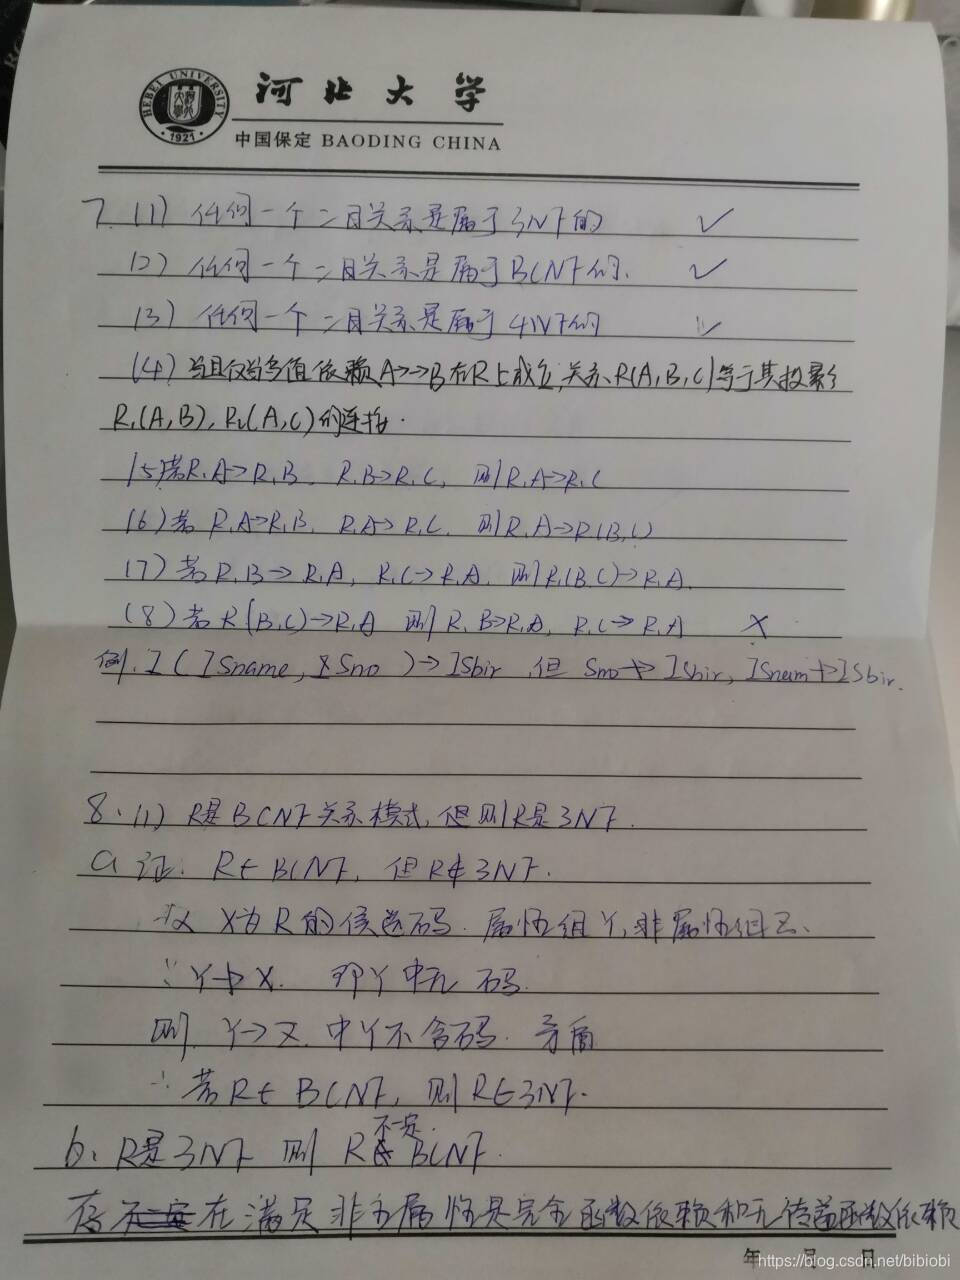 河北大学
HEBEI UNIVERSITY
1921
中国保定 BAODING CHINA
7. (1) 任何一个二目关系是属于3NF的 ✓
(2) 任何一个二目关系是属于BCNF的. ✓
(3) 任何一个二目关系是属于4NF的 ✓
(4) 当且仅当多值依赖A→→B在R上成立,关系R(A,B,C)等于其投影
R₁(A,B), R₂(A,C)的连接.
(5) 若R.A→R.B, R.B→R.C, 则R.A→R.C
(6) 若R.A→R.B, R.A→R.C, 则R.A→R(B,C)
(7) 若R.B→R.A, R.C→R.A. 则R(B,C)→R.A.
(8) 若R(B,C)→R.A 则R.B→R.A, R.C→R.A ×
例. I(ISname, Sno)→ISbir, 但 Sno↛ISbir, ISnam↛ISbir.
8. (1) R是BCNF关系模式, 则R是3NF.
a 证: R∈BCNF, 但R∉3NF.
X为R的候选码. 属性组Y, 非属性组Z.
∵ Y↛X. 即Y中无码.
则 Y→Z 中Y不含码. 矛盾
∴ 若R∈BCNF, 则R∈3NF.
不一定
b. R是3NF 则 R∈BCNF.
存在满足非主属性是完全函数依赖和无传递函数依赖
年 月 日
https://blog.csdn.net/bibiobi